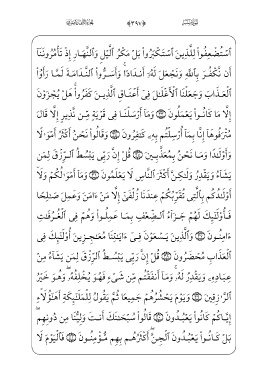 ٱسْتُضْعِفُوا۟ لِلَّذِينَ ٱسْتَكْبَرُوا۟ بَلْ مَكْرُ ٱلَّيْلِ وَٱلنَّهَارِ إِذْ تَأْمُرُونَنَآ
أَن نَّكْفُرَ بِٱللَّهِ وَنَجْعَلَ لَهُۥٓ أَندَادًا ۚ وَأَسَرُّوا۟ ٱلنَّدَامَةَ لَمَّا رَأَوُا۟
ٱلْعَذَابَ وَجَعَلْنَا ٱلْأَغْلَـٰلَ فِىٓ أَعْنَاقِ ٱلَّذِينَ كَفَرُوا۟ هَلْ يُجْزَوْنَ
إِلَّا مَا كَانُوا۟ يَعْمَلُونَ وَمَآ أَرْسَلْنَا فِى قَرْيَةٍ مِّن نَّذِيرٍ إِلَّا قَالَ
مُتْرَفُوهَآ إِنَّا بِمَآ أُرْسِلْتُم بِهِۦ كَـٰفِرُونَ وَقَالُوا۟ نَحْنُ أَكْثَرُ أَمْوَٰلًا
وَأَوْلَـٰدًا وَمَا نَحْنُ بِمُعَذَّبِينَ قُلْ إِنَّ رَبِّى يَبْسُطُ ٱلرِّزْقَ لِمَن
يَشَآءُ وَيَقْدِرُ وَلَـٰكِنَّ أَكْثَرَ ٱلنَّاسِ لَا يَعْلَمُونَ وَمَآ أَمْوَٰلُكُمْ وَلَآ
أَوْلَـٰدُكُم بِٱلَّتِى تُقَرِّبُكُمْ عِندَنَا زُلْفَىٰٓ إِلَّا مَنْ ءَامَنَ وَعَمِلَ صَـٰلِحًا
فَأُو۟لَـٰٓئِكَ لَهُمْ جَزَآءُ ٱلضِّعْفِ بِمَا عَمِلُوا۟ وَهُمْ فِى ٱلْغُرُفَـٰتِ
ءَامِنُونَ وَٱلَّذِينَ يَسْعَوْنَ فِىٓ ءَايَـٰتِنَا مُعَـٰجِزِينَ أُو۟لَـٰٓئِكَ فِى
ٱلْعَذَابِ مُحْضَرُونَ قُلْ إِنَّ رَبِّى يَبْسُطُ ٱلرِّزْقَ لِمَن يَشَآءُ مِنْ
عِبَادِهِۦ وَيَقْدِرُ لَهُۥ ۚ وَمَآ أَنفَقْتُم مِّن شَىْءٍ فَهُوَ يُخْلِفُهُۥ ۖ وَهُوَ خَيْرُ
ٱلرَّٰزِقِينَ وَيَوْمَ يَحْشُرُهُمْ جَمِيعًا ثُمَّ يَقُولُ لِلْمَلَـٰٓئِكَةِ أَهَـٰٓؤُلَآءِ
إِيَّاكُمْ كَانُوا۟ يَعْبُدُونَ قَالُوا۟ سُبْحَـٰنَكَ أَنتَ وَلِيُّنَا مِن دُونِهِم ۖ
بَلْ كَانُوا۟ يَعْبُدُونَ ٱلْجِنَّ ۖ أَكْثَرُهُم بِهِم مُّؤْمِنُونَ فَٱلْيَوْمَ لَا